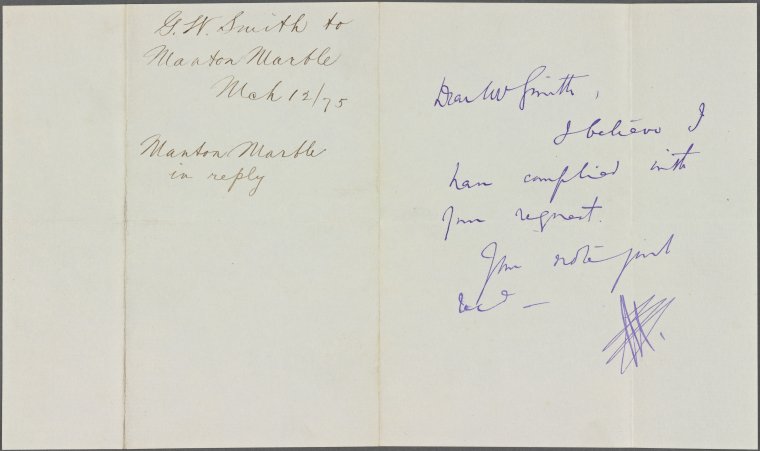 G. W. Smith to
Manton Marble
Mch 12/75
Manton Marble
in reply
Dear Mr Smith,
I believe I
have complied with
your request.
Your note just
recd —